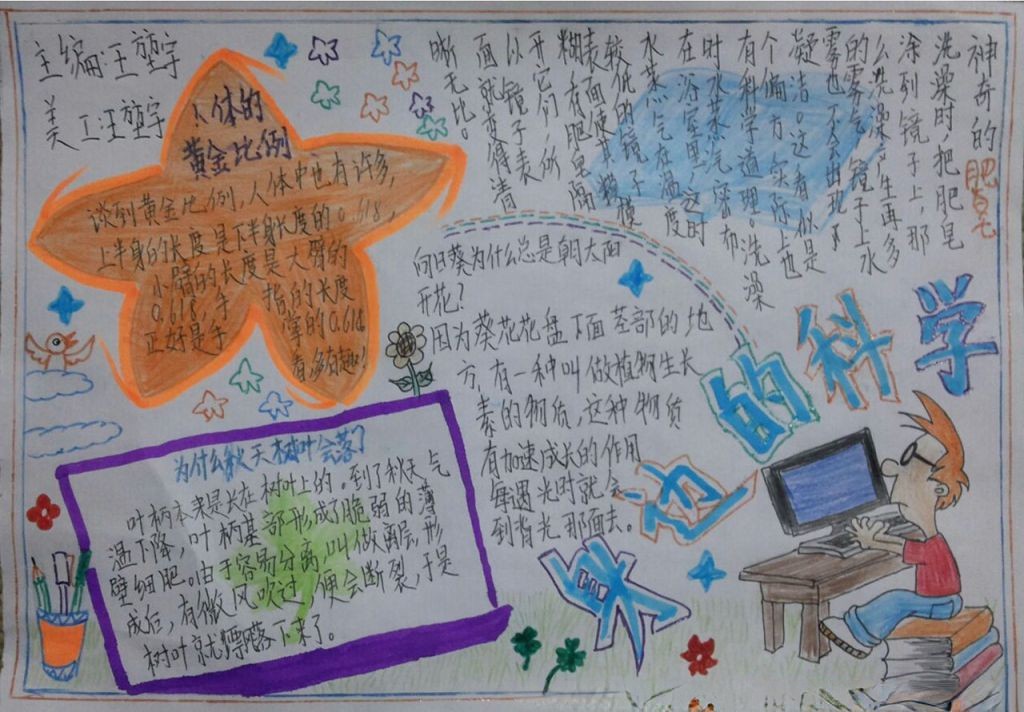 主编:王堃宇
美工:王堃宇
人体的
黄金比例
谈到黄金比例,人体中也有许多,
上半身的长度是下半身长度的0.618,
小臂的长度是大臂的
0.618,手指的长度
正好是手掌的0.618
看,多有趣!
神奇的肥皂
洗澡时把肥皂
涂到镜子上,那
么洗澡产生再多
的雾气,镜子上水
雾也不会出现了
凝洁。这看似是
个偏方,实际上也
有科学道理。洗澡
时水蒸汽深布
在浴室里,这时
水蒸气在温度
较低的镜子
表面使其模
糊,有肥皂隔
开它们,所
以镜子表
面就变得清
晰无比。
向日葵为什么总是朝太阳
开花?
因为葵花花盘下面茎部的地
方,有一种叫做植物生长
素的物质,这种物质
有加速成长的作用
每遇光时就会
到背光那面去。
为什么秋天树叶会落?
叶柄本来是长在树叶上的。到了秋天气
温下降,叶柄基部形成了脆弱的薄
壁细肥。由于容易分离,叫做离层,形
成后,有微风吹过,便会断裂,于是
树叶就飘落下来了。
身边的科学